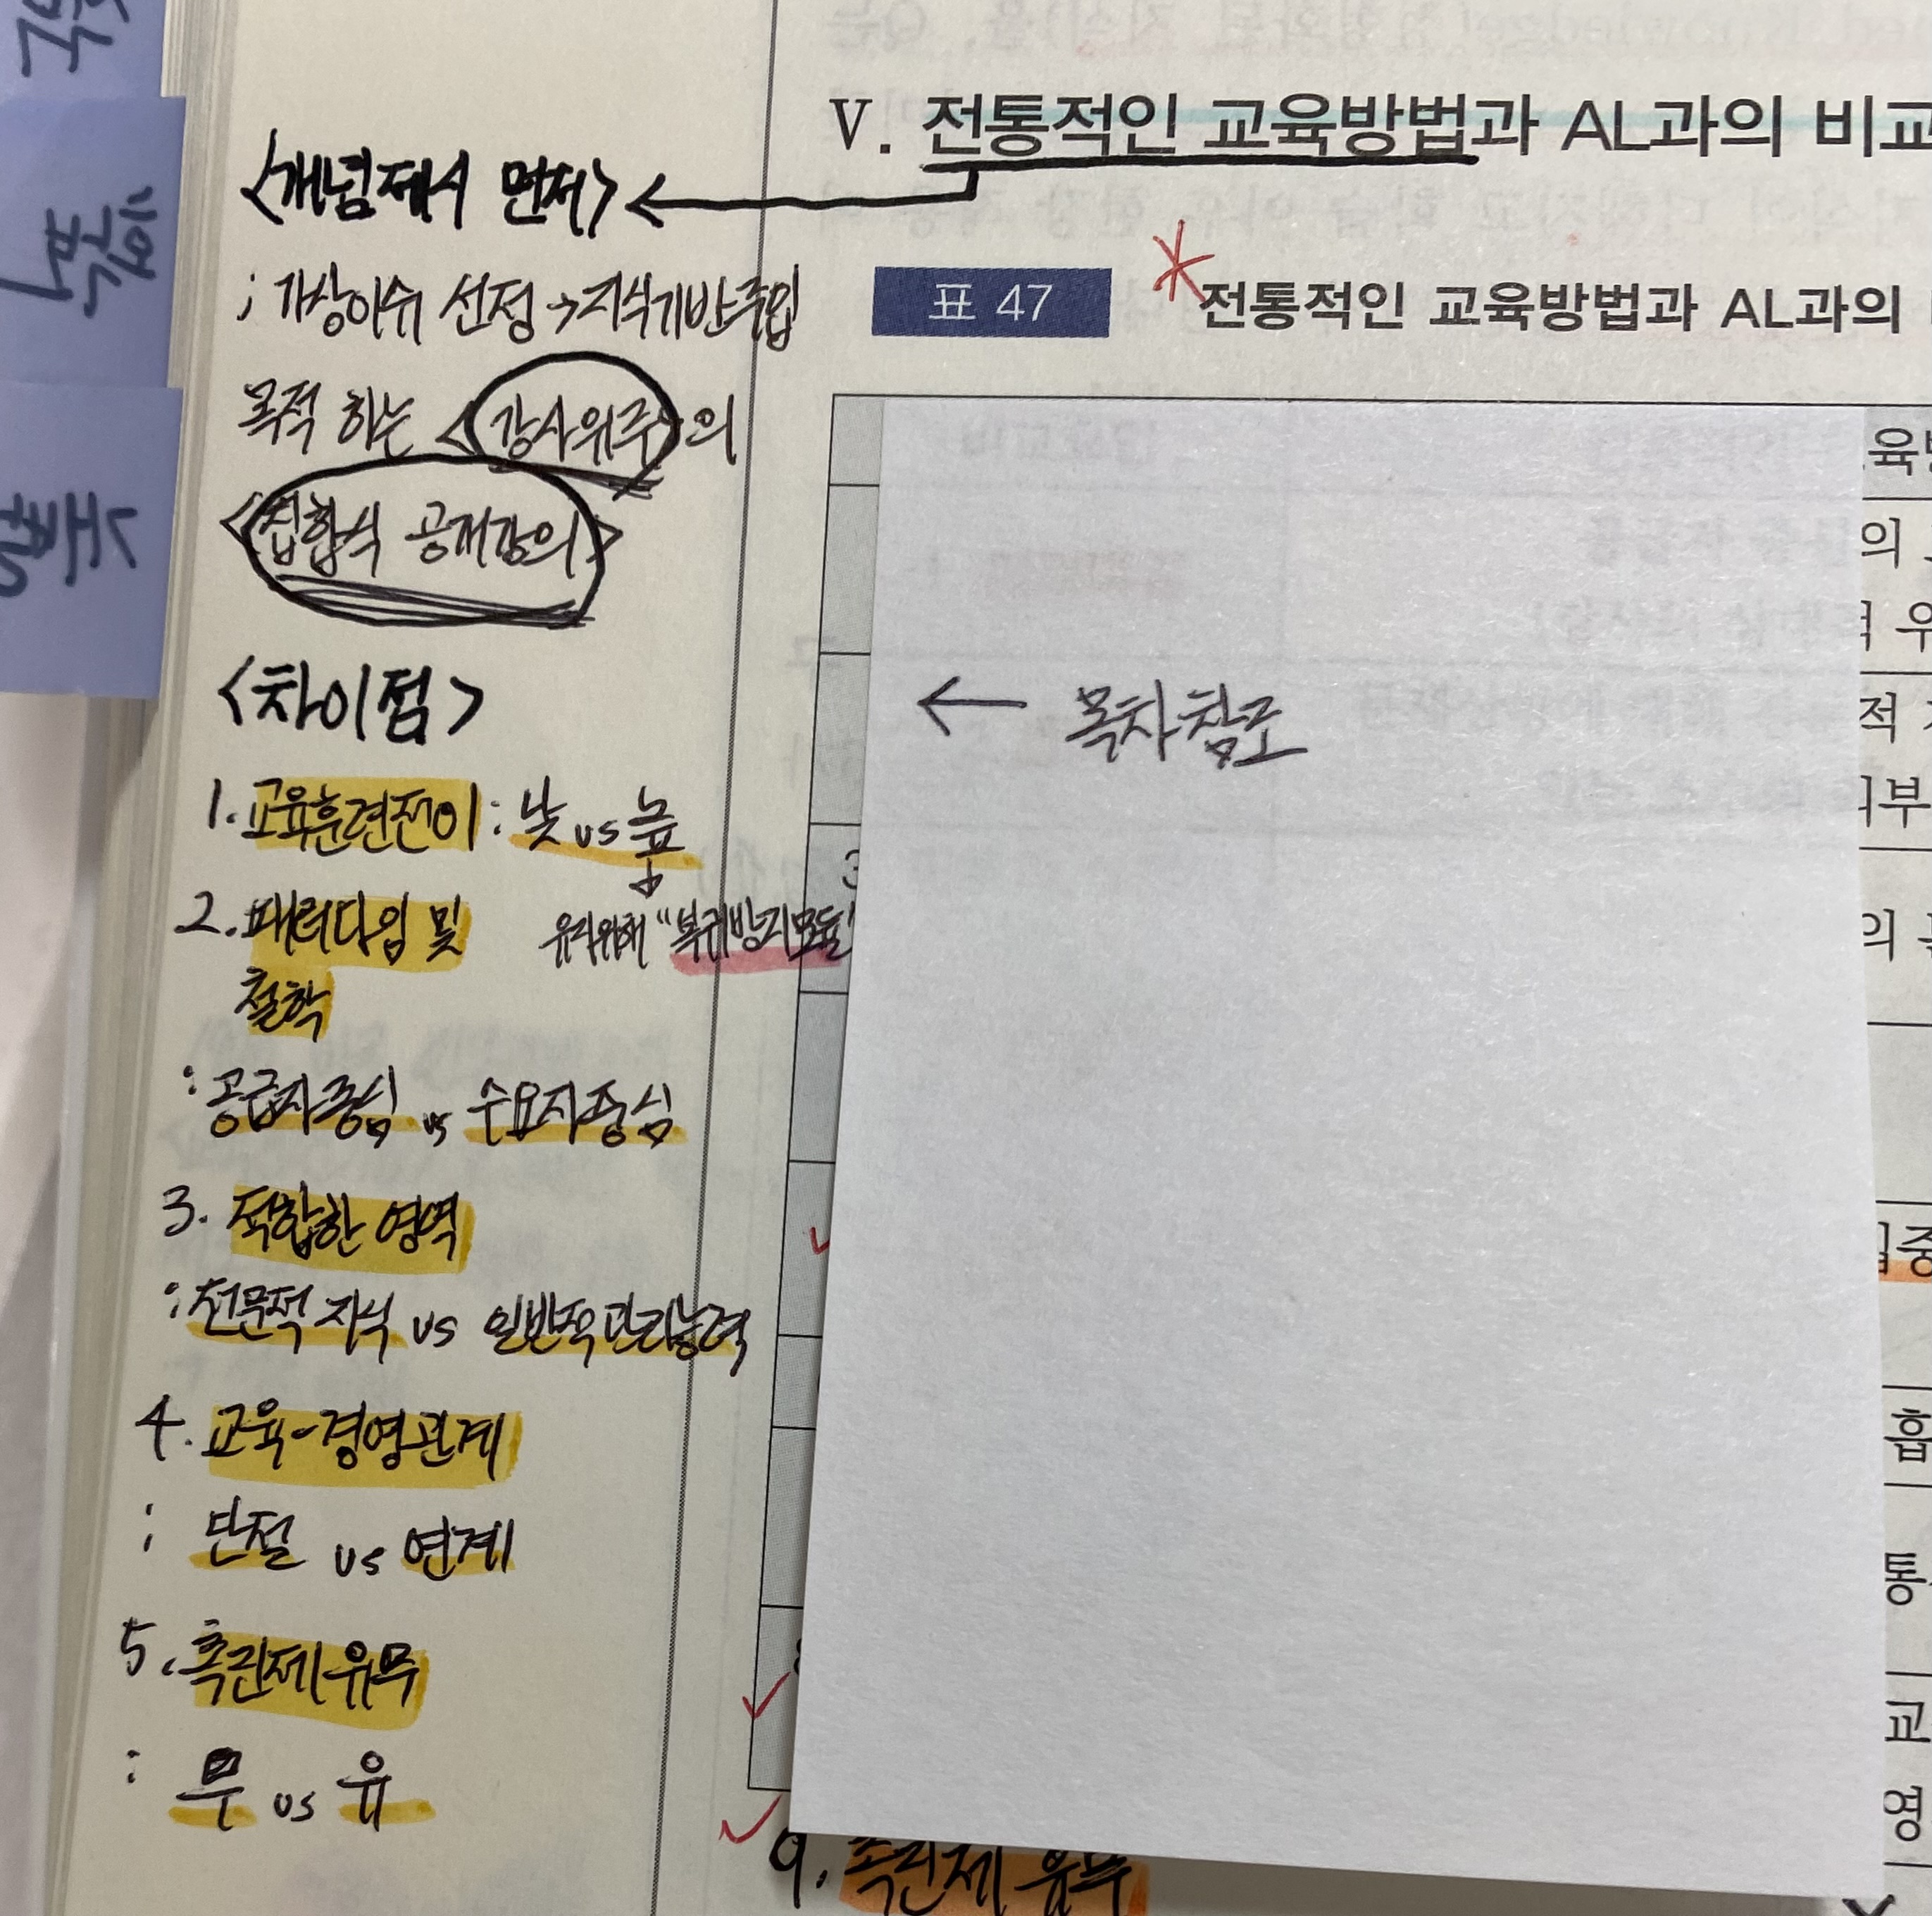 V. 전통적인 교육방법과 AL과의 비교
<개념제시 먼저> ←
; 가상이슈 선정 → 지식기반주입
목적 하는 <강사위주>의
<집합식 공개강의>
<차이점>
1. 교육훈련전이 : 낮 vs 높
유지위해 "복귀방지모듈"
2. 패러다임 및
철학
: 공급자중심 vs 수요자중심
3. 적합한 영역
: 전문적 지식 vs 일반적 관리능력
4. 교육-경영관계
: 단절 vs 연계
5. 촉진제 유무
: 무 vs 유
표 47
전통적인 교육방법과 AL과의
← 목차참조
육
의
적
부
의
중
합
통
교
영
9. 촉진제 유무